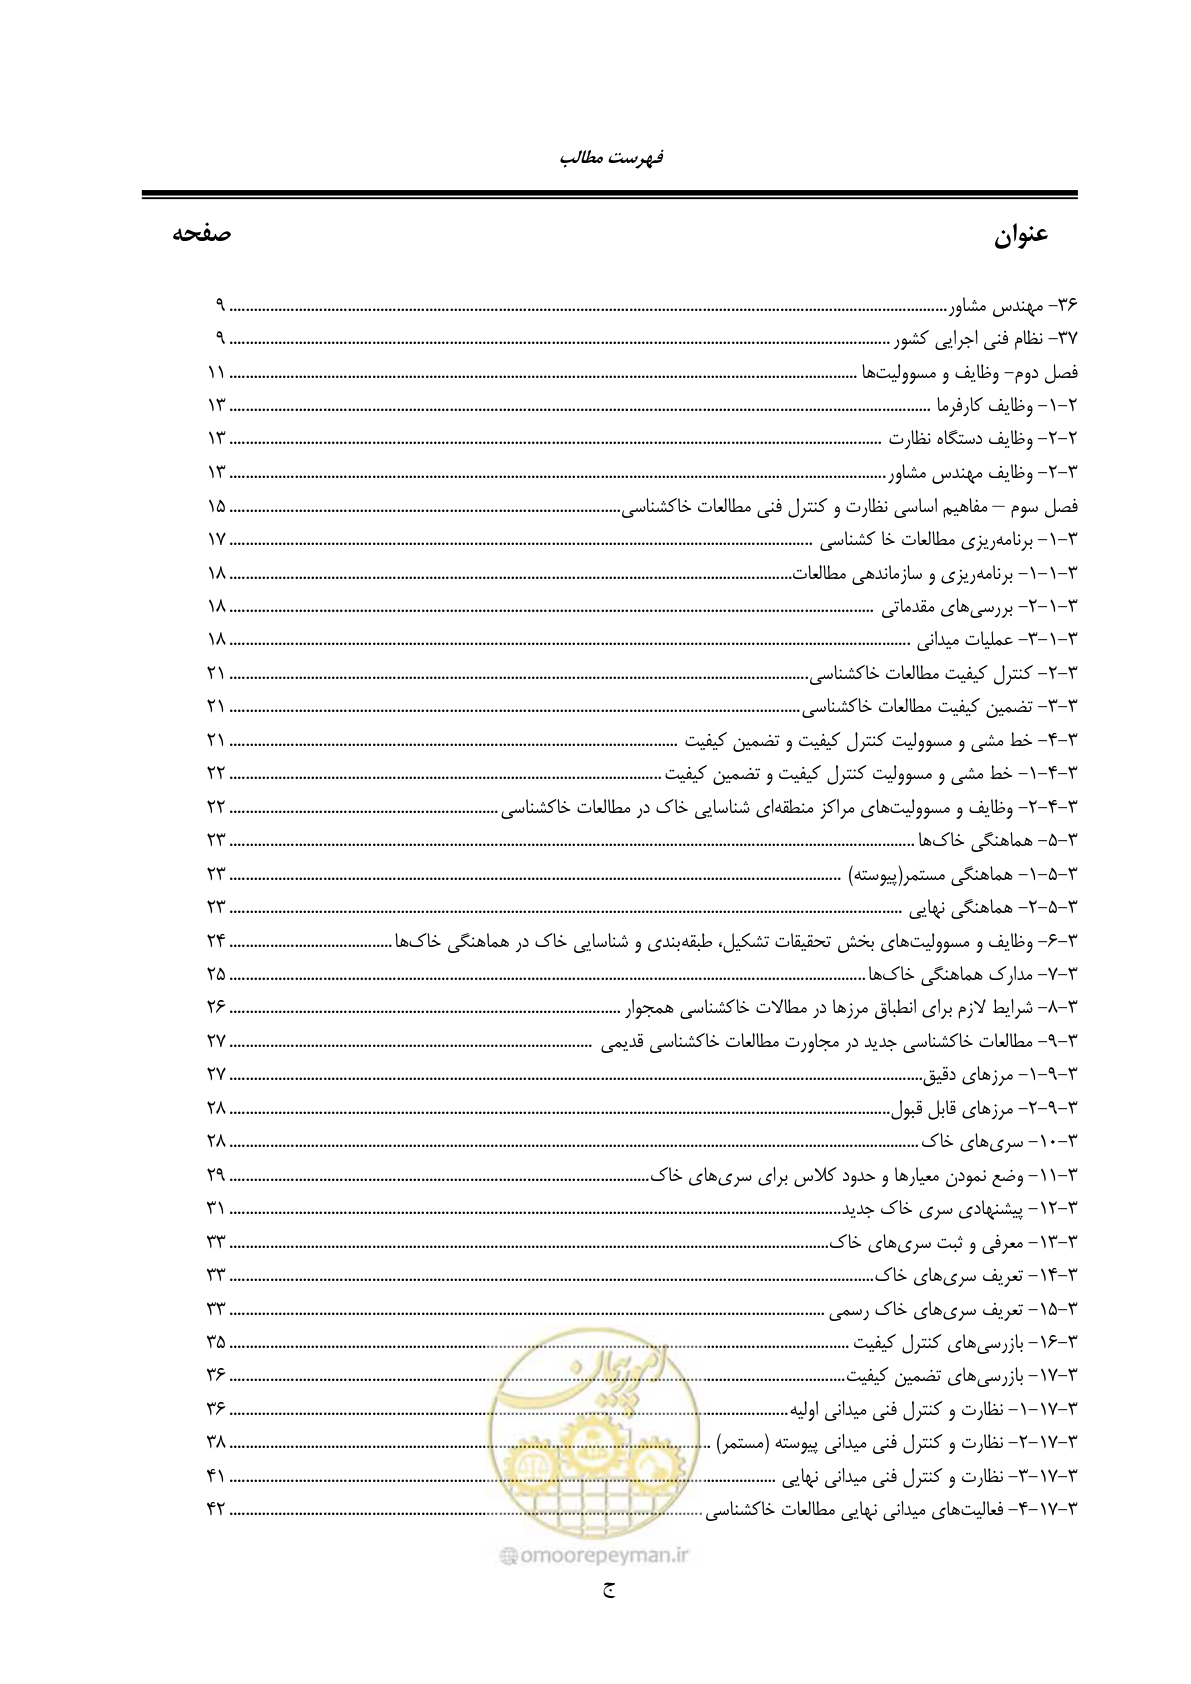 فهرست مطالب
عنوان صفحه
۳۶- مهندس مشاور ........ ۹
۳۷- نظام فنی اجرایی کشور ........ ۹
فصل دوم- وظایف و مسوولیت‌ها ........ ۱۱
۲-۱- وظایف کارفرما ........ ۱۳
۲-۲- وظایف دستگاه نظارت ........ ۱۳
۳-۲- وظایف مهندس مشاور ........ ۱۳
فصل سوم – مفاهیم اساسی نظارت و کنترل فنی مطالعات خاکشناسی ........ ۱۵
۳-۱- برنامه‌ریزی مطالعات خا کشناسی ........ ۱۷
۳-۱-۱- برنامه‌ریزی و سازماندهی مطالعات ........ ۱۸
۳-۱-۲- بررسی‌های مقدماتی ........ ۱۸
۳-۱-۳- عملیات میدانی ........ ۱۸
۳-۲- کنترل کیفیت مطالعات خاکشناسی ........ ۲۱
۳-۳- تضمین کیفیت مطالعات خاکشناسی ........ ۲۱
۳-۴- خط مشی و مسوولیت کنترل کیفیت و تضمین کیفیت ........ ۲۱
۳-۴-۱- خط مشی و مسوولیت کنترل کیفیت و تضمین کیفیت ........ ۲۲
۳-۴-۲- وظایف و مسوولیت‌های مراکز منطقه‌ای شناسایی خاک در مطالعات خاکشناسی ........ ۲۲
۳-۵- هماهنگی خاک‌ها ........ ۲۳
۳-۵-۱- هماهنگی مستمر(پیوسته) ........ ۲۳
۳-۵-۲- هماهنگی نهایی ........ ۲۳
۳-۶- وظایف و مسوولیت‌های بخش تحقیقات تشکیل، طبقه‌بندی و شناسایی خاک در هماهنگی خاک‌ها ........ ۲۴
۳-۷- مدارک هماهنگی خاک‌ها ........ ۲۵
۳-۸- شرایط لازم برای انطباق مرزها در مطالات خاکشناسی همجوار ........ ۲۶
۳-۹- مطالعات خاکشناسی جدید در مجاورت مطالعات خاکشناسی قدیمی ........ ۲۷
۳-۹-۱- مرزهای دقیق ........ ۲۷
۳-۹-۲- مرزهای قابل قبول ........ ۲۸
۳-۱۰- سری‌های خاک ........ ۲۸
۳-۱۱- وضع نمودن معیارها و حدود کلاس برای سری‌های خاک ........ ۲۹
۳-۱۲- پیشنهادی سری خاک جدید ........ ۳۱
۳-۱۳- معرفی و ثبت سری‌های خاک ........ ۳۳
۳-۱۴- تعریف سری‌های خاک ........ ۳۳
۳-۱۵- تعریف سری‌های خاک رسمی ........ ۳۳
۳-۱۶- بازرسی‌های کنترل کیفیت ........ ۳۵
۳-۱۷- بازرسی‌های تضمین کیفیت ........ ۳۶
۳-۱۷-۱- نظارت و کنترل فنی میدانی اولیه ........ ۳۶
۳-۱۷-۲- نظارت و کنترل فنی میدانی پیوسته (مستمر) ........ ۳۸
۳-۱۷-۳- نظارت و کنترل فنی میدانی نهایی ........ ۴۱
۳-۱۷-۴- فعالیت‌های میدانی نهایی مطالعات خاکشناسی ........ ۴۲
امور پیمان
@omoorepeyman.ir
ج